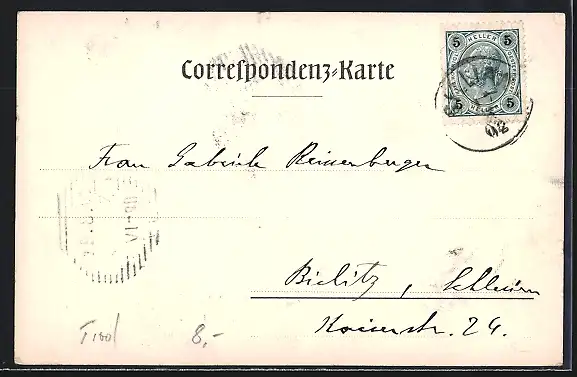 Correspondenz-Karte
5 HELLER 5
5 HELLER 5
02
Frau Gabriele Reinenberger
VI-00
Bielitz, Schlesien
Kaiserstr. 24.
Tirol 8,-